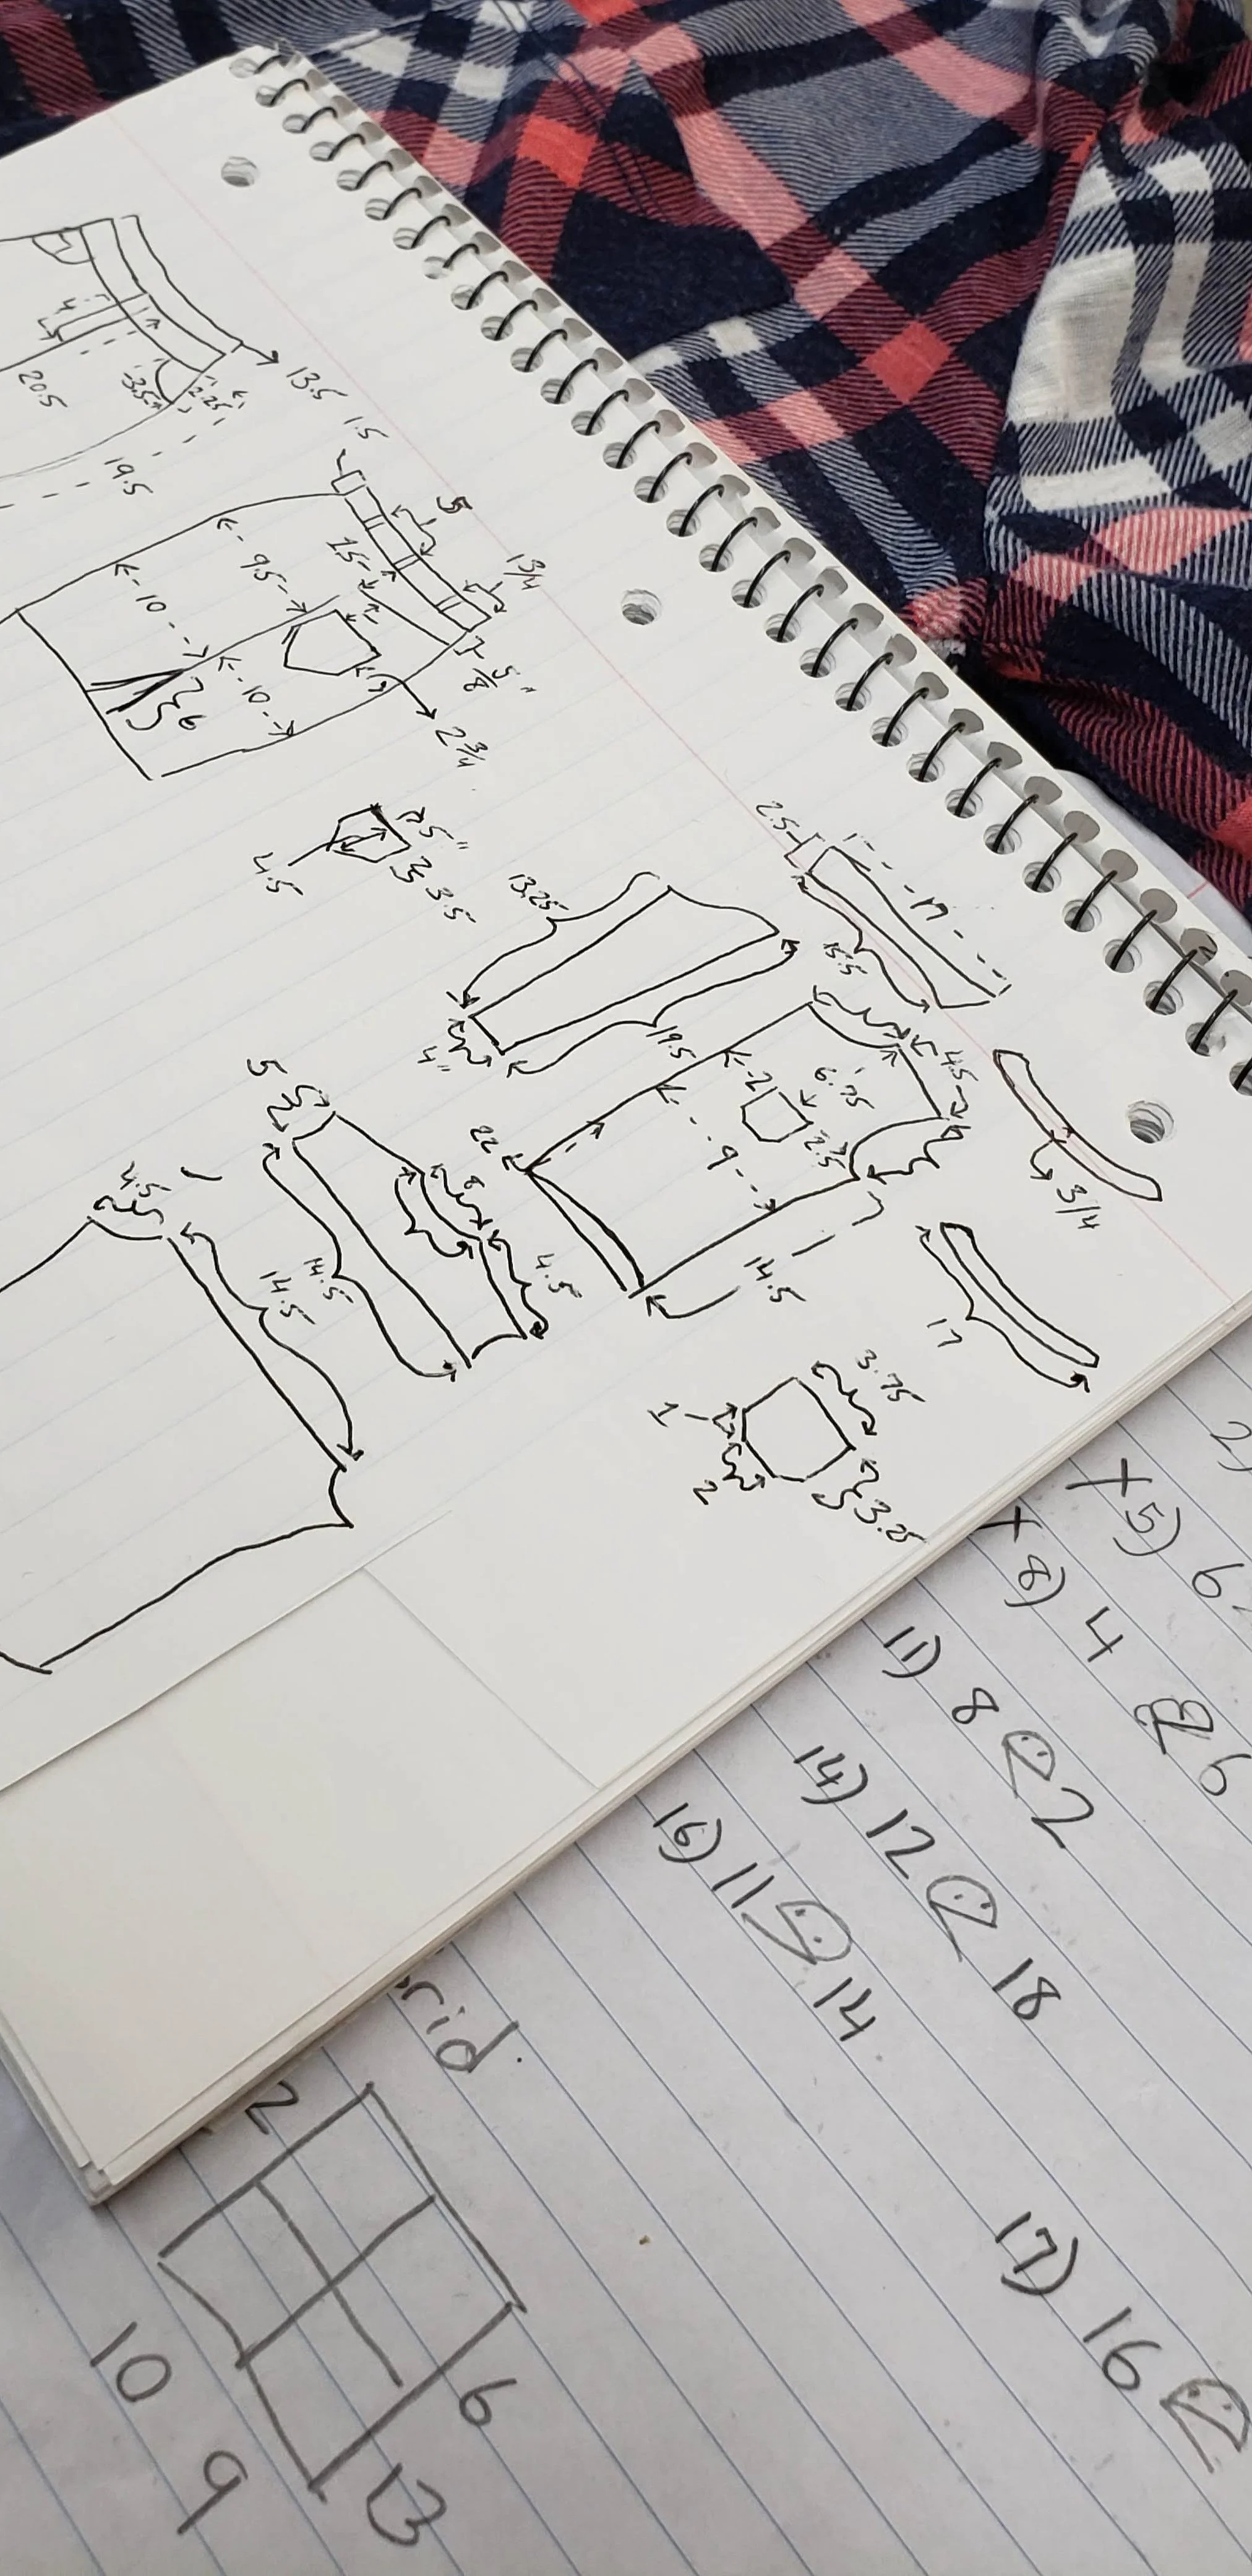 13.5
4
3.5
2.25
20.5
19.5
1.5
5
1 3/4
1.5
9.5
10
10
6
5/8"
2 3/4
1.5"
3.5
4.5
2.5
17
15.5
13.25
19.5
4"
4.5
3/4
6.75
2
2.5
9
22
14.5
17
5
8
4.5
14.5
4.5
14.5
3.75
1
2
3.25
2)
x 5) 6
x 8) 4 6
11) 8 2
14) 12 18
16) 11 14
17) 16
rid.
2
6
10
9
13